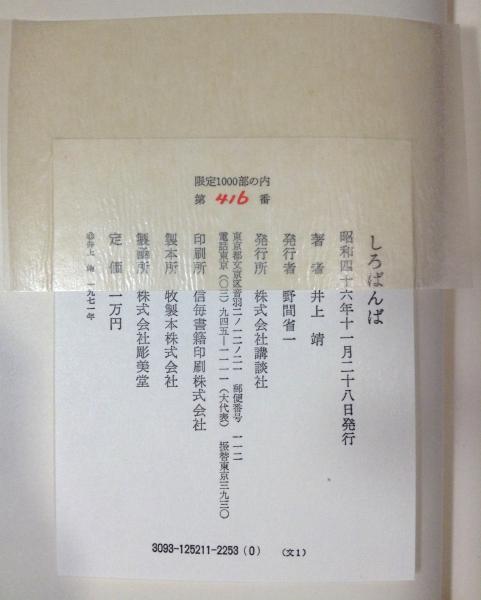 限定1000部の内
第 416 番
しろばんば
昭和四十六年十一月二十八日発行
著者 井上 靖
発行者 野間省一
発行所 株式会社講談社
東京都文京区音羽二ノ一二ノ二一 郵便番号 一一二
電話東京(〇三)九四五—一一一一(大代表) 振替東京三九三〇
印刷所 信毎書籍印刷株式会社
製本所 牧製本株式会社
製函所 株式会社彫美堂
定価 一万円
©井上 靖 一九七一年
3093-125211-2253 (0) (文1)